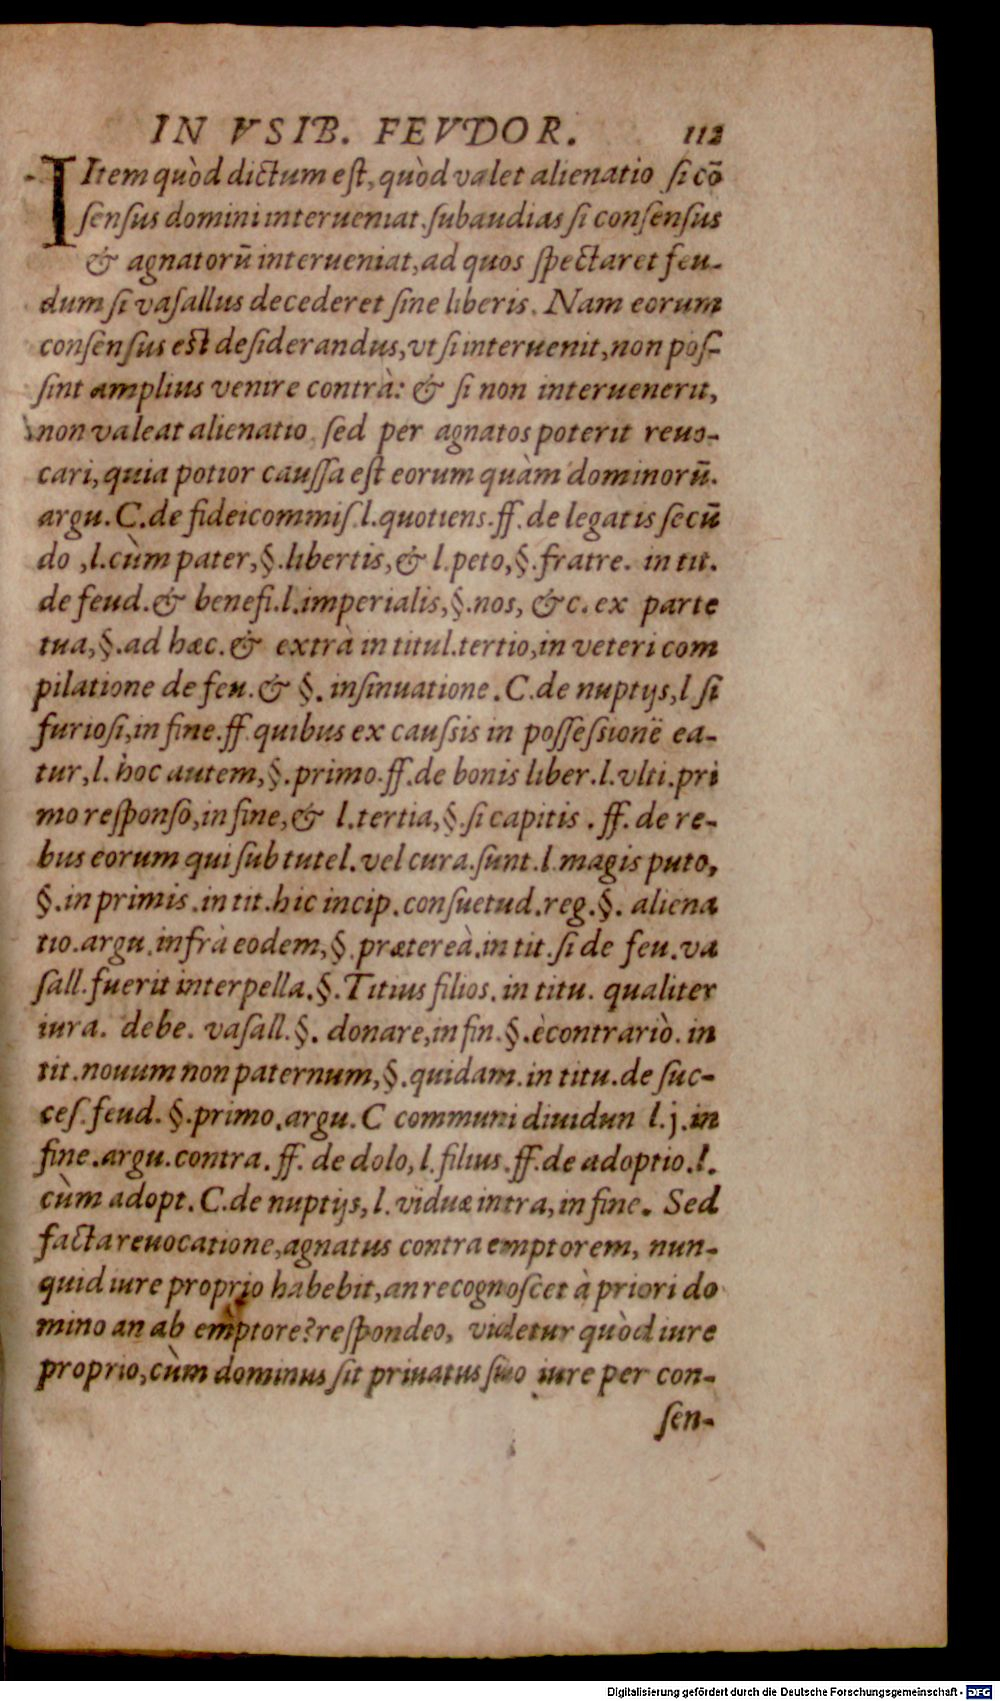 IN VSIB. FEVDOR. 112
IItem quòd dictum est, quòd valet alienatio si cō
sensus domini interueniat. subaudias si consensus
& agnatorū interueniat, ad quos spectaret feu-
dum si vasallus decederet sine liberis. Nam eorum
consensus est desiderandus, vt si interuenit, non pos-
sint amplius venire contrà: & si non interuenerit,
non valeat alienatio, sed per agnatos poterit reuo-
cari, quia potior caussa est eorum quàm dominorū.
argu. C. de fideicommis. l. quotiens. ff. de legatis secū
do, l. cùm pater, §. libertis, & l. peto, §. fratre. in tit.
de feud. & benefi. l. imperialis, §. nos, &c. ex parte
tua, §. ad hæc. & extrà in titul. tertio, in veteri com
pilatione de feu. & §. insinuatione. C. de nuptijs, l. si
furiosi, in fine. ff. quibus ex caussis in possessionē ea-
tur, l. hoc autem, §. primo. ff. de bonis liber. l. vlti. pri
mo responso, in fine, & l. tertia, §. si capitis. ff. de re-
bus eorum qui sub tutel. vel cura. sunt. l. magis puto,
§. in primis. in tit. hic incip. consuetud. reg. §. aliena
tio. argu. infrà eodem, §. prætereà. in tit. si de feu. va
sall. fuerit interpella. §. Titius filios. in titu. qualiter
iura. debe. vasall. §. donare, in fin. §. è contrariò. in
tit. nouum non paternum, §. quidam. in titu. de suc-
ces. feud. §. primo. argu. C communi diuidun l. j. in
fine. argu. contra. ff. de dolo, l. filius. ff. de adoptio. l.
cùm adopt. C. de nuptijs, l. viduæ intra, in fine. Sed
facta reuocatione, agnatus contra emptorem, nun-
quid iure proprio habebit, an recognoscet à priori do
mino an ab emptore? respondeo, videtur quòd iure
proprio, cùm dominus sit priuatus suo iure per con-
sen-
Digitalisierung gefördert durch die Deutsche Forschungsgemeinschaft - DFG